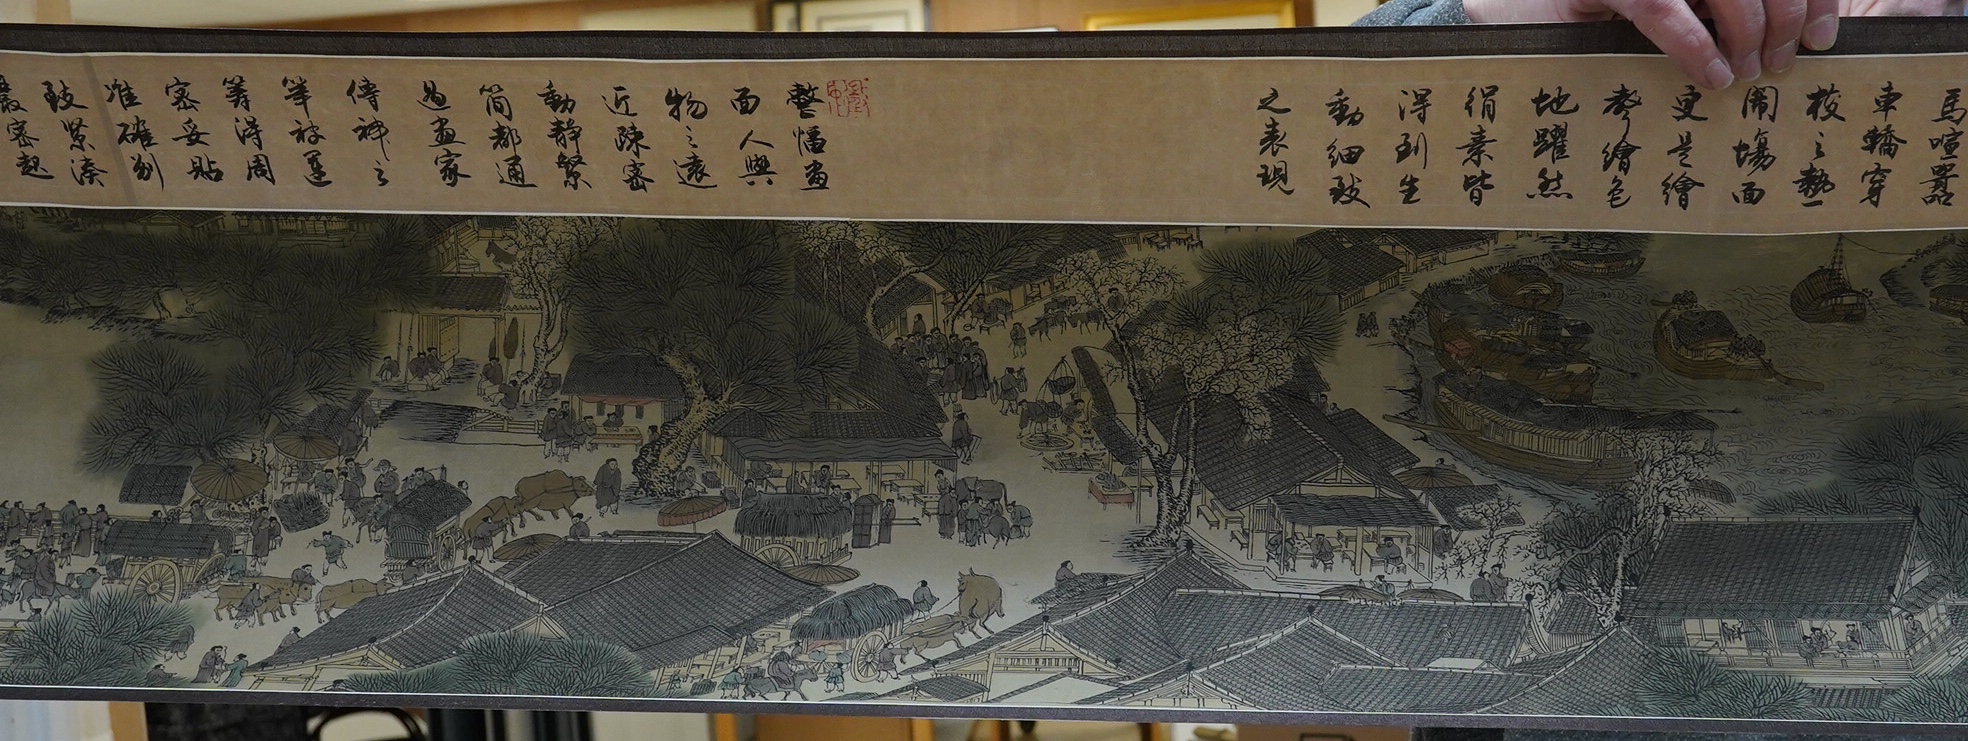 馬喧囂
車轎穿
梭之熱
鬧場面
更是繪
聲繪色
地躍然
絹素皆
得到生
動細致
之表現
整幅畫
面人與
物之遠
近疎密
動靜繁
簡都通
過畫家
傳神之
筆被運
籌得周
密妥貼
准確別
致緊湊
嚴密起